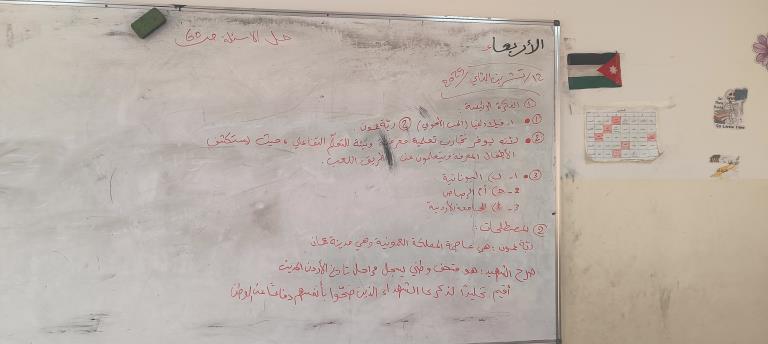 الأربعاء
حل الأسئلة ص60
12/ تشرين الثاني /
① الفكرة الرئيسة:
• ① 1. فيلادلفيا (الحب الأخوي) ② ربّة عمون.
• ② لأنه يوفر تجارب تعلمية وبيئة التعلم التفاعلي، حيث يستكشف
الأطفال المعرفة ويتعلمون عن طريق اللعب.
• ③ 1- ب) اليونانية
2- أم الرصاص
3- الجامعة الأردنية
② المصطلحات:
ربّة عمون: هي عاصمة المملكة العمونية وهي مدينة عمان
صرح الشهيد: هو متحف وطني يسجل مراحل تاريخ الأردن الحديث
أقيم تخليدًا لذكرى الشهداء الذين ضحّوا بأنفسهم دفاعًا عن الوطن